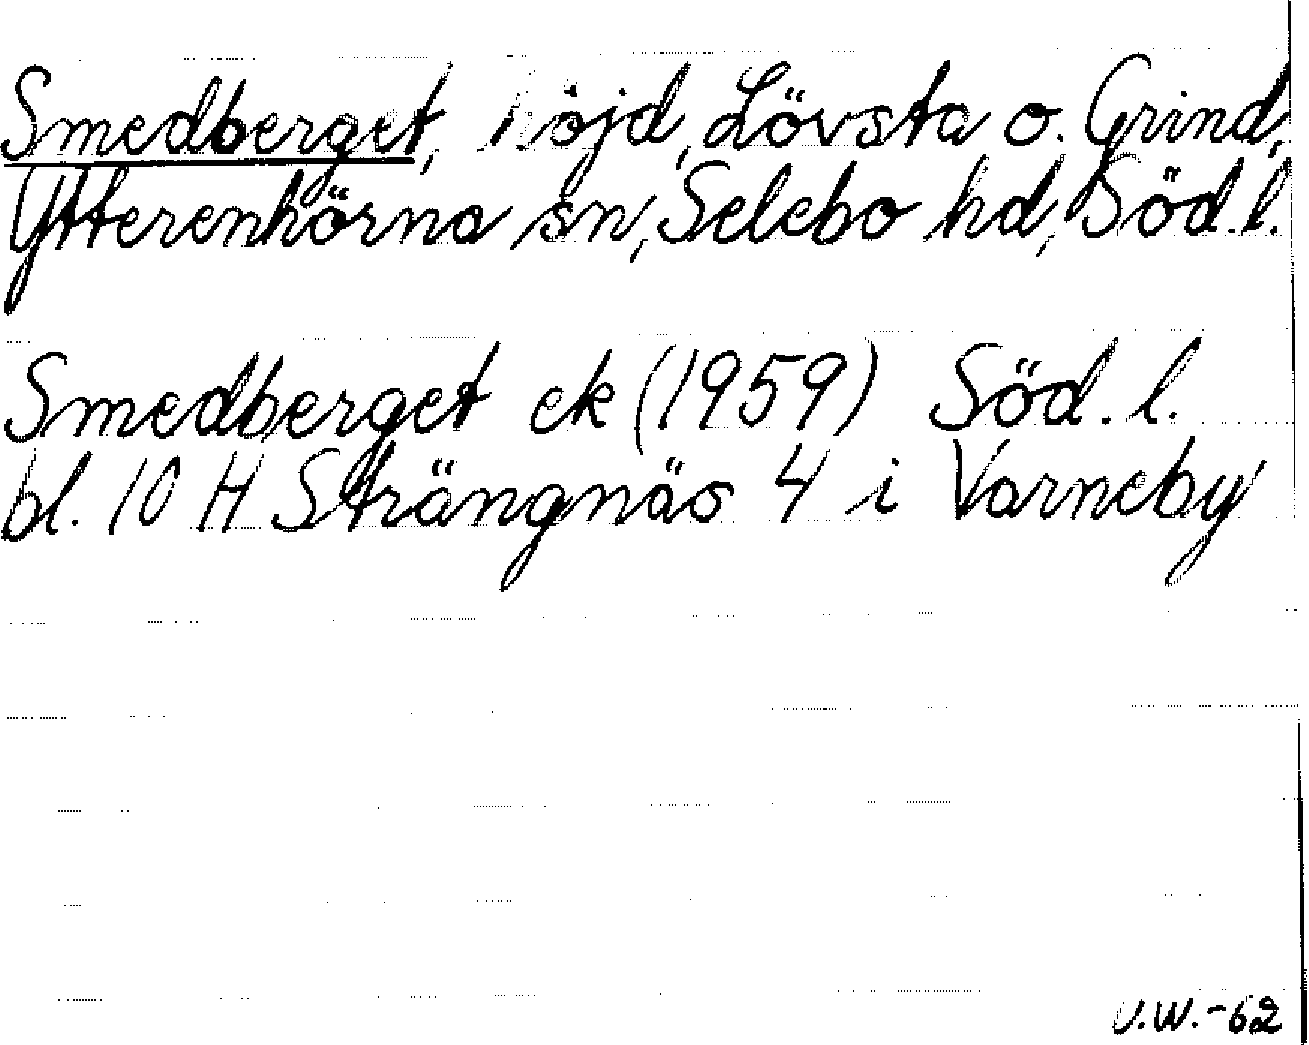 Smedberget, höjd, Lövsta o. Grind,
Ytterenhörna sn, Selebo hd, Söd.l.
Smedberget ek (1959) Söd. l.
bl. 10 H Strängnäs 4 i Varneby
U.W.-62